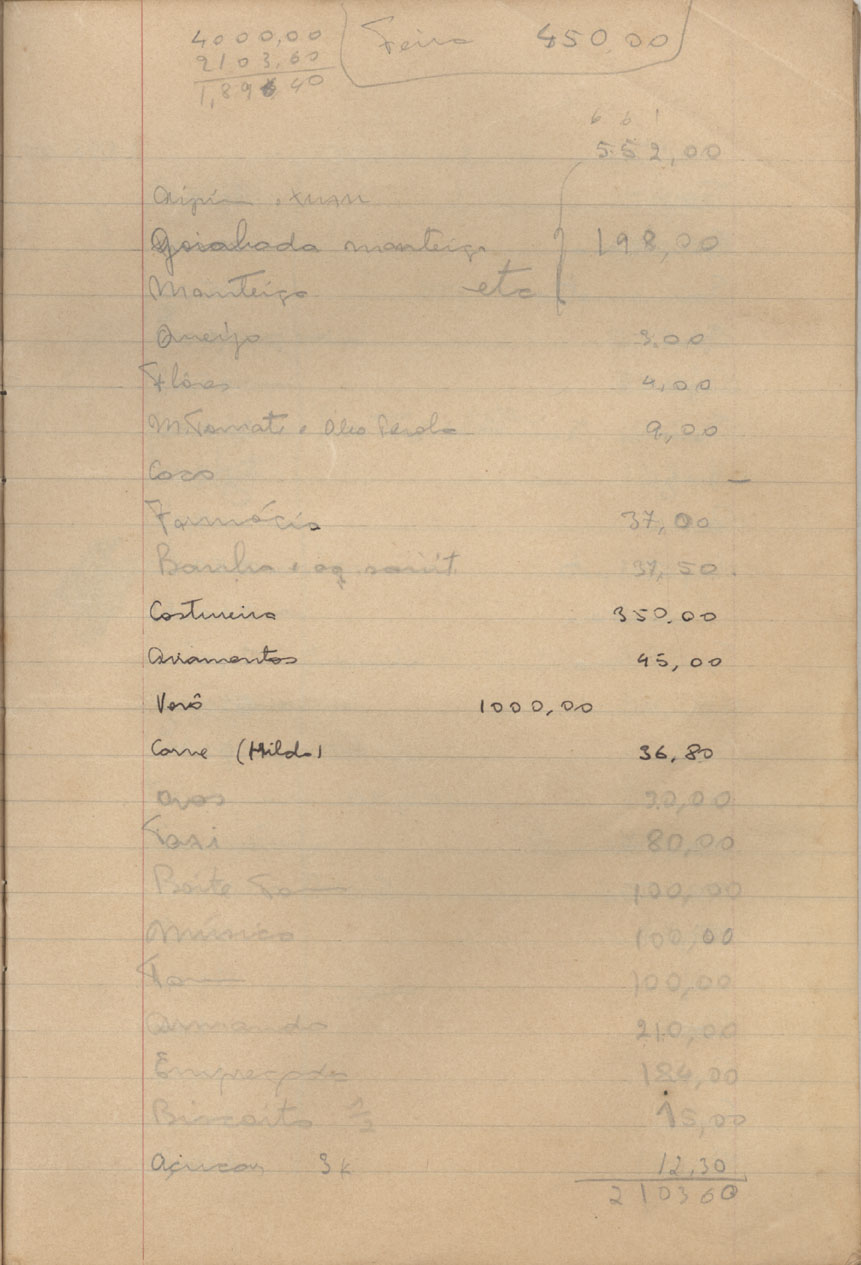 4000,00
2103,60
1,896 40
Feira 450,00
6 6 1
552,00
Aipim
Goiabada manteiga 198,00
Manteiga etc
Queijo 9.00
Flôres 4,00
M. Tomate e Oleo Perola 9,00
Coco —
Farmácia 37,00
Banha e ag. sanit. 37,50.
Costureira 350.00
Aviamentos 45,00
Vovô 1000,00
Carne (Hilda) 36,80
Ovos 30,00
Taxi 80,00
Boite Tom 100,00
Música 100,00
Tom 100,00
Armando 210,00
Empregada 184,00
Biscoito 1/2 15,00
Açucar 3k 12,30
210360